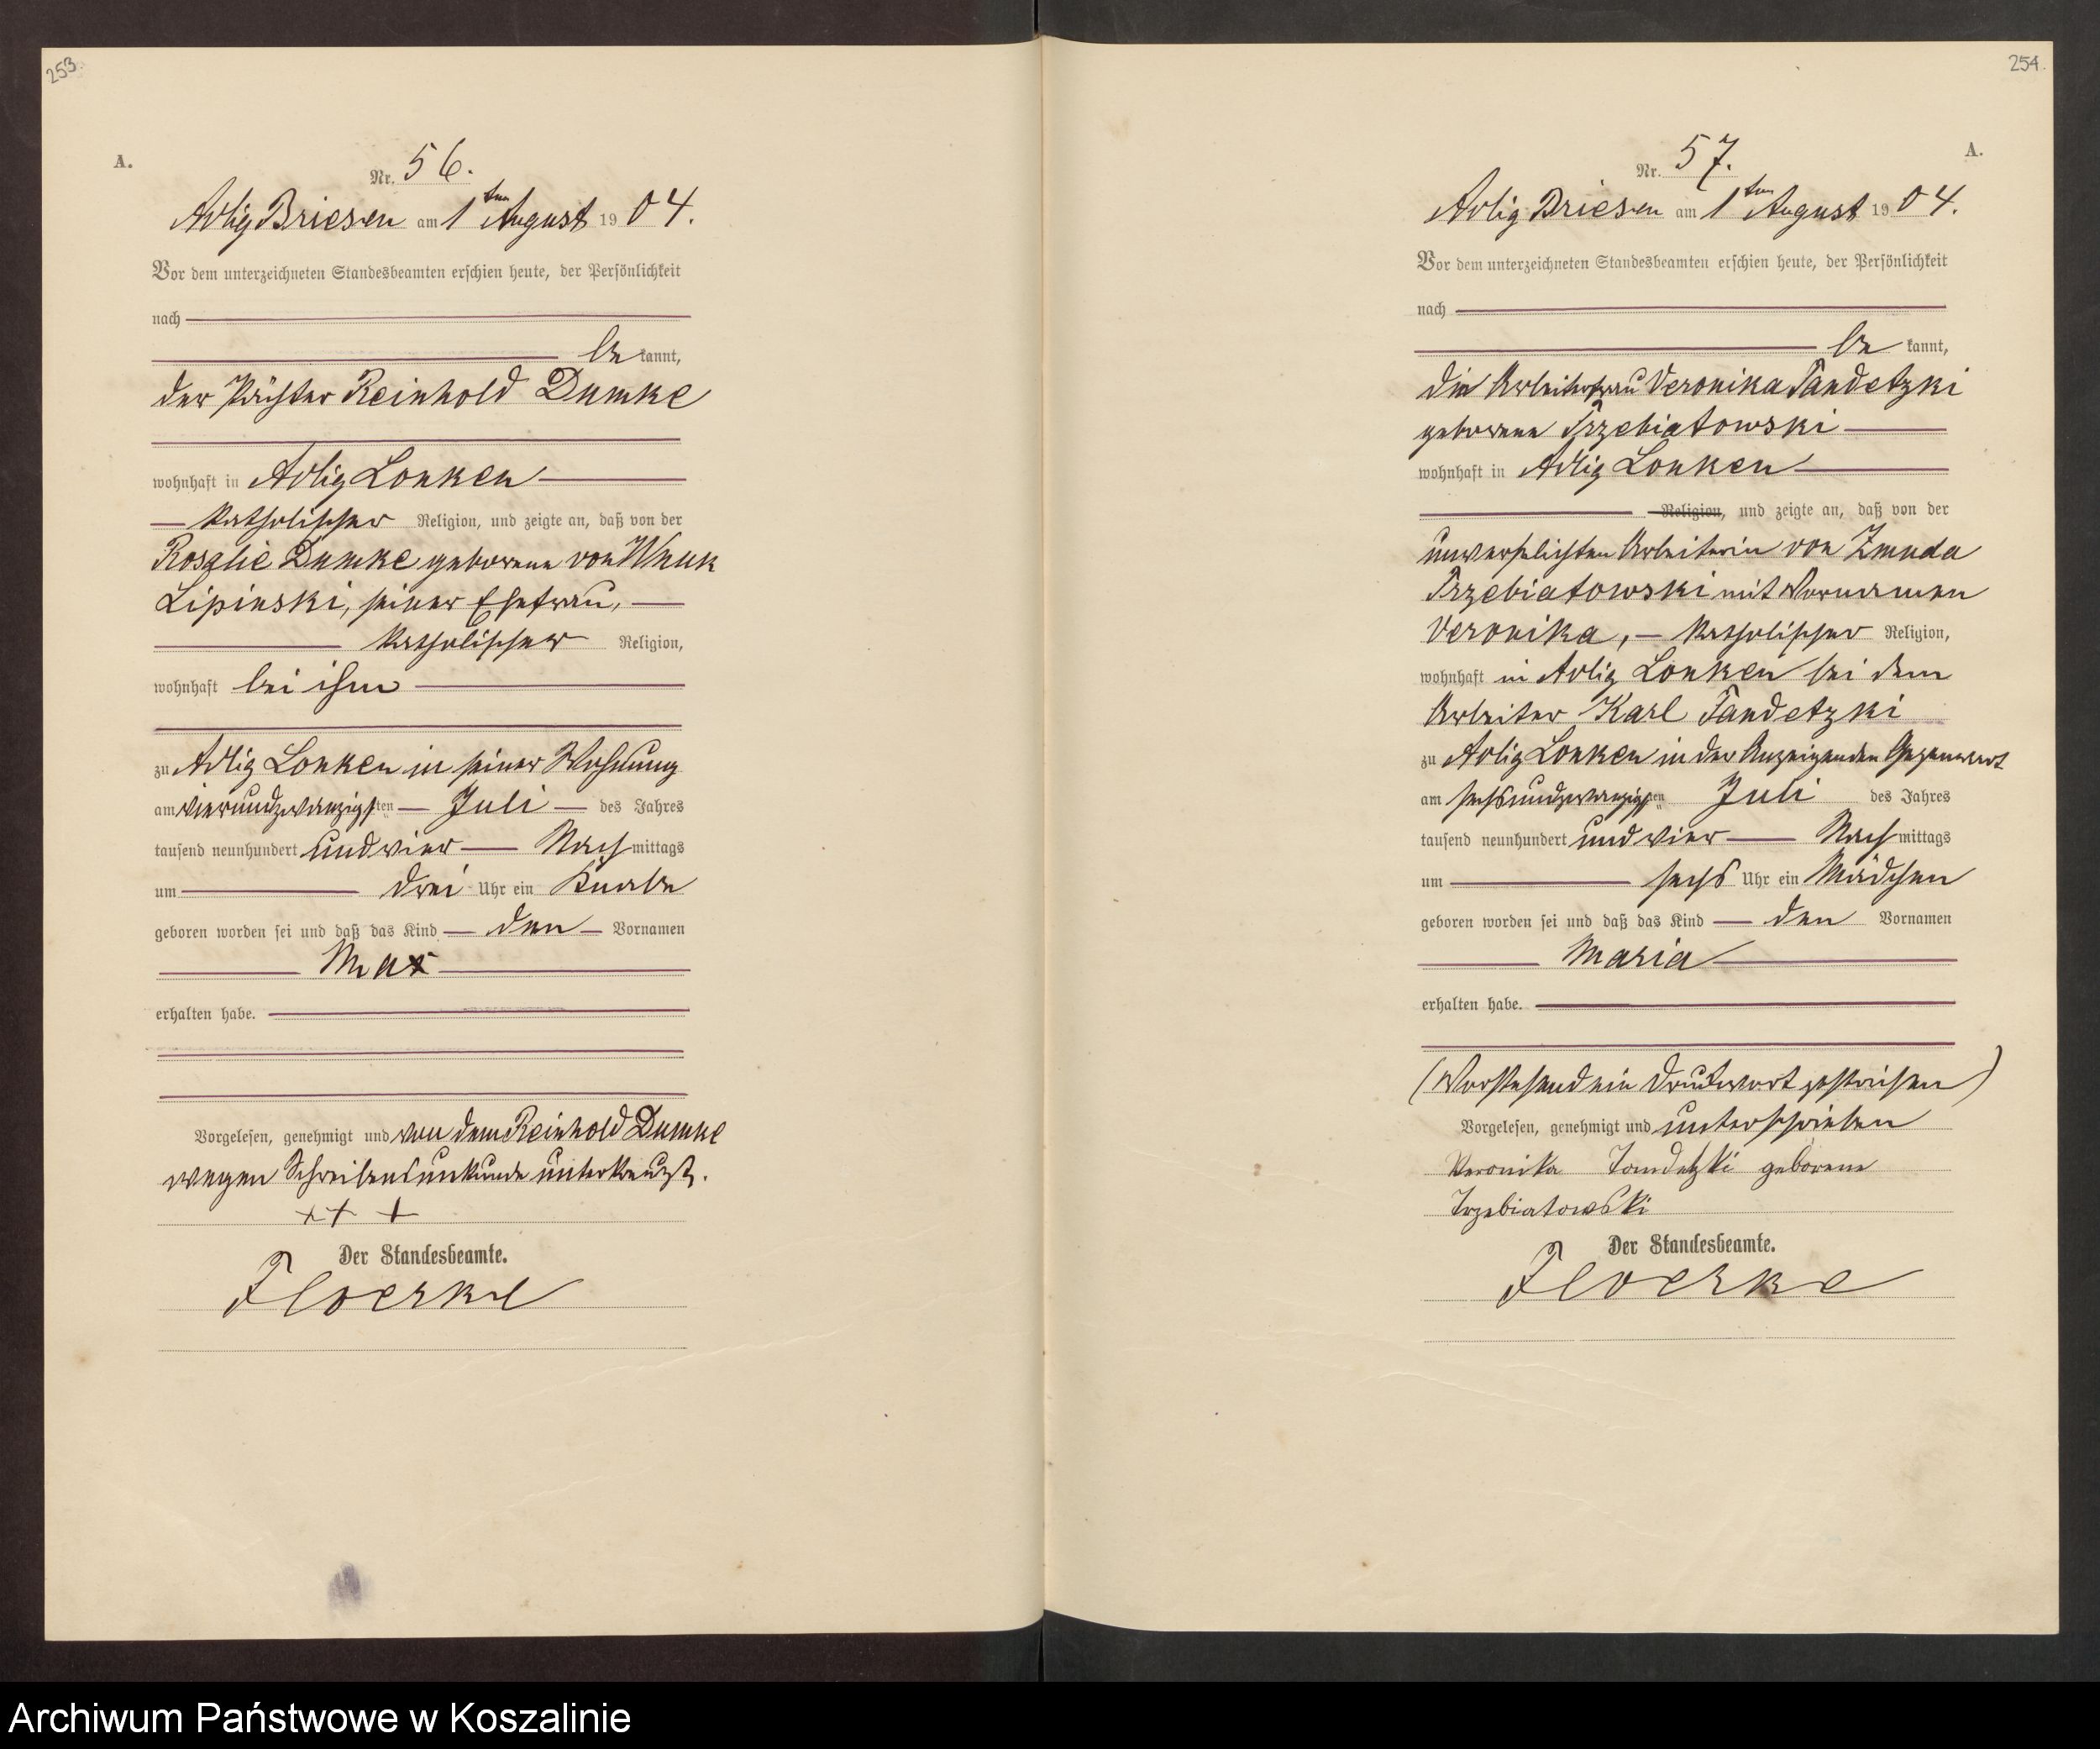 253.
A.
Nr. 56.
Adlig Briesen am 1ten August 1904.
Vor dem unterzeichneten Standesbeamten erschien heute, der Persönlichkeit
nach
be kannt,
der Pächter Reinhold Dumke
wohnhaft in Adlig Lonken
katholischer Religion, und zeigte an, daß von der
Rosalie Dumke geborene von Wnuk
Lipinski, seiner Ehefrau,
katholischer Religion,
wohnhaft bei ihm
zu Adlig Lonken in seiner Wohnung
am vierundzwanzigsten Juli des Jahres
tausend neunhundert und vier Nachmittags
um drei Uhr ein Knabe
geboren worden sei und daß das Kind den Vornamen
Max
erhalten habe.
Vorgelesen, genehmigt und von dem Reinhold Dumke
wegen Schreibensunkunde unterkreuzt.
++ +
Der Standesbeamte.
Floerke
254.
A.
Nr. 57.
Adlig Briesen am 1ten August 1904.
Vor dem unterzeichneten Standesbeamten erschien heute, der Persönlichkeit
nach
be kannt,
die Arbeiterfrau Veronika Tandetzki
geborene Trzebiatowski
wohnhaft in Adlig Lonken
Religion, und zeigte an, daß von der
unverehelichten Arbeiterin von Zmuda
Trzebiatowski mit Vornamen
Veronika, katholischer Religion,
wohnhaft in Adlig Lonken bei dem
Arbeiter Karl Tandetzki
zu Adlig Lonken in der Anzeigenden Gegenwart
am sechsundzwanzigsten Juli des Jahres
tausend neunhundert und vier Nachmittags
um sechs Uhr ein Mädchen
geboren worden sei und daß das Kind den Vornamen
Maria
erhalten habe.
(Vorstehend ein Druckwort gestrichen)
Vorgelesen, genehmigt und unterschrieben
Veronika Tandetzki geborene
Trzebiatowski
Der Standesbeamte.
Floerke
Archiwum Państwowe w Koszalinie